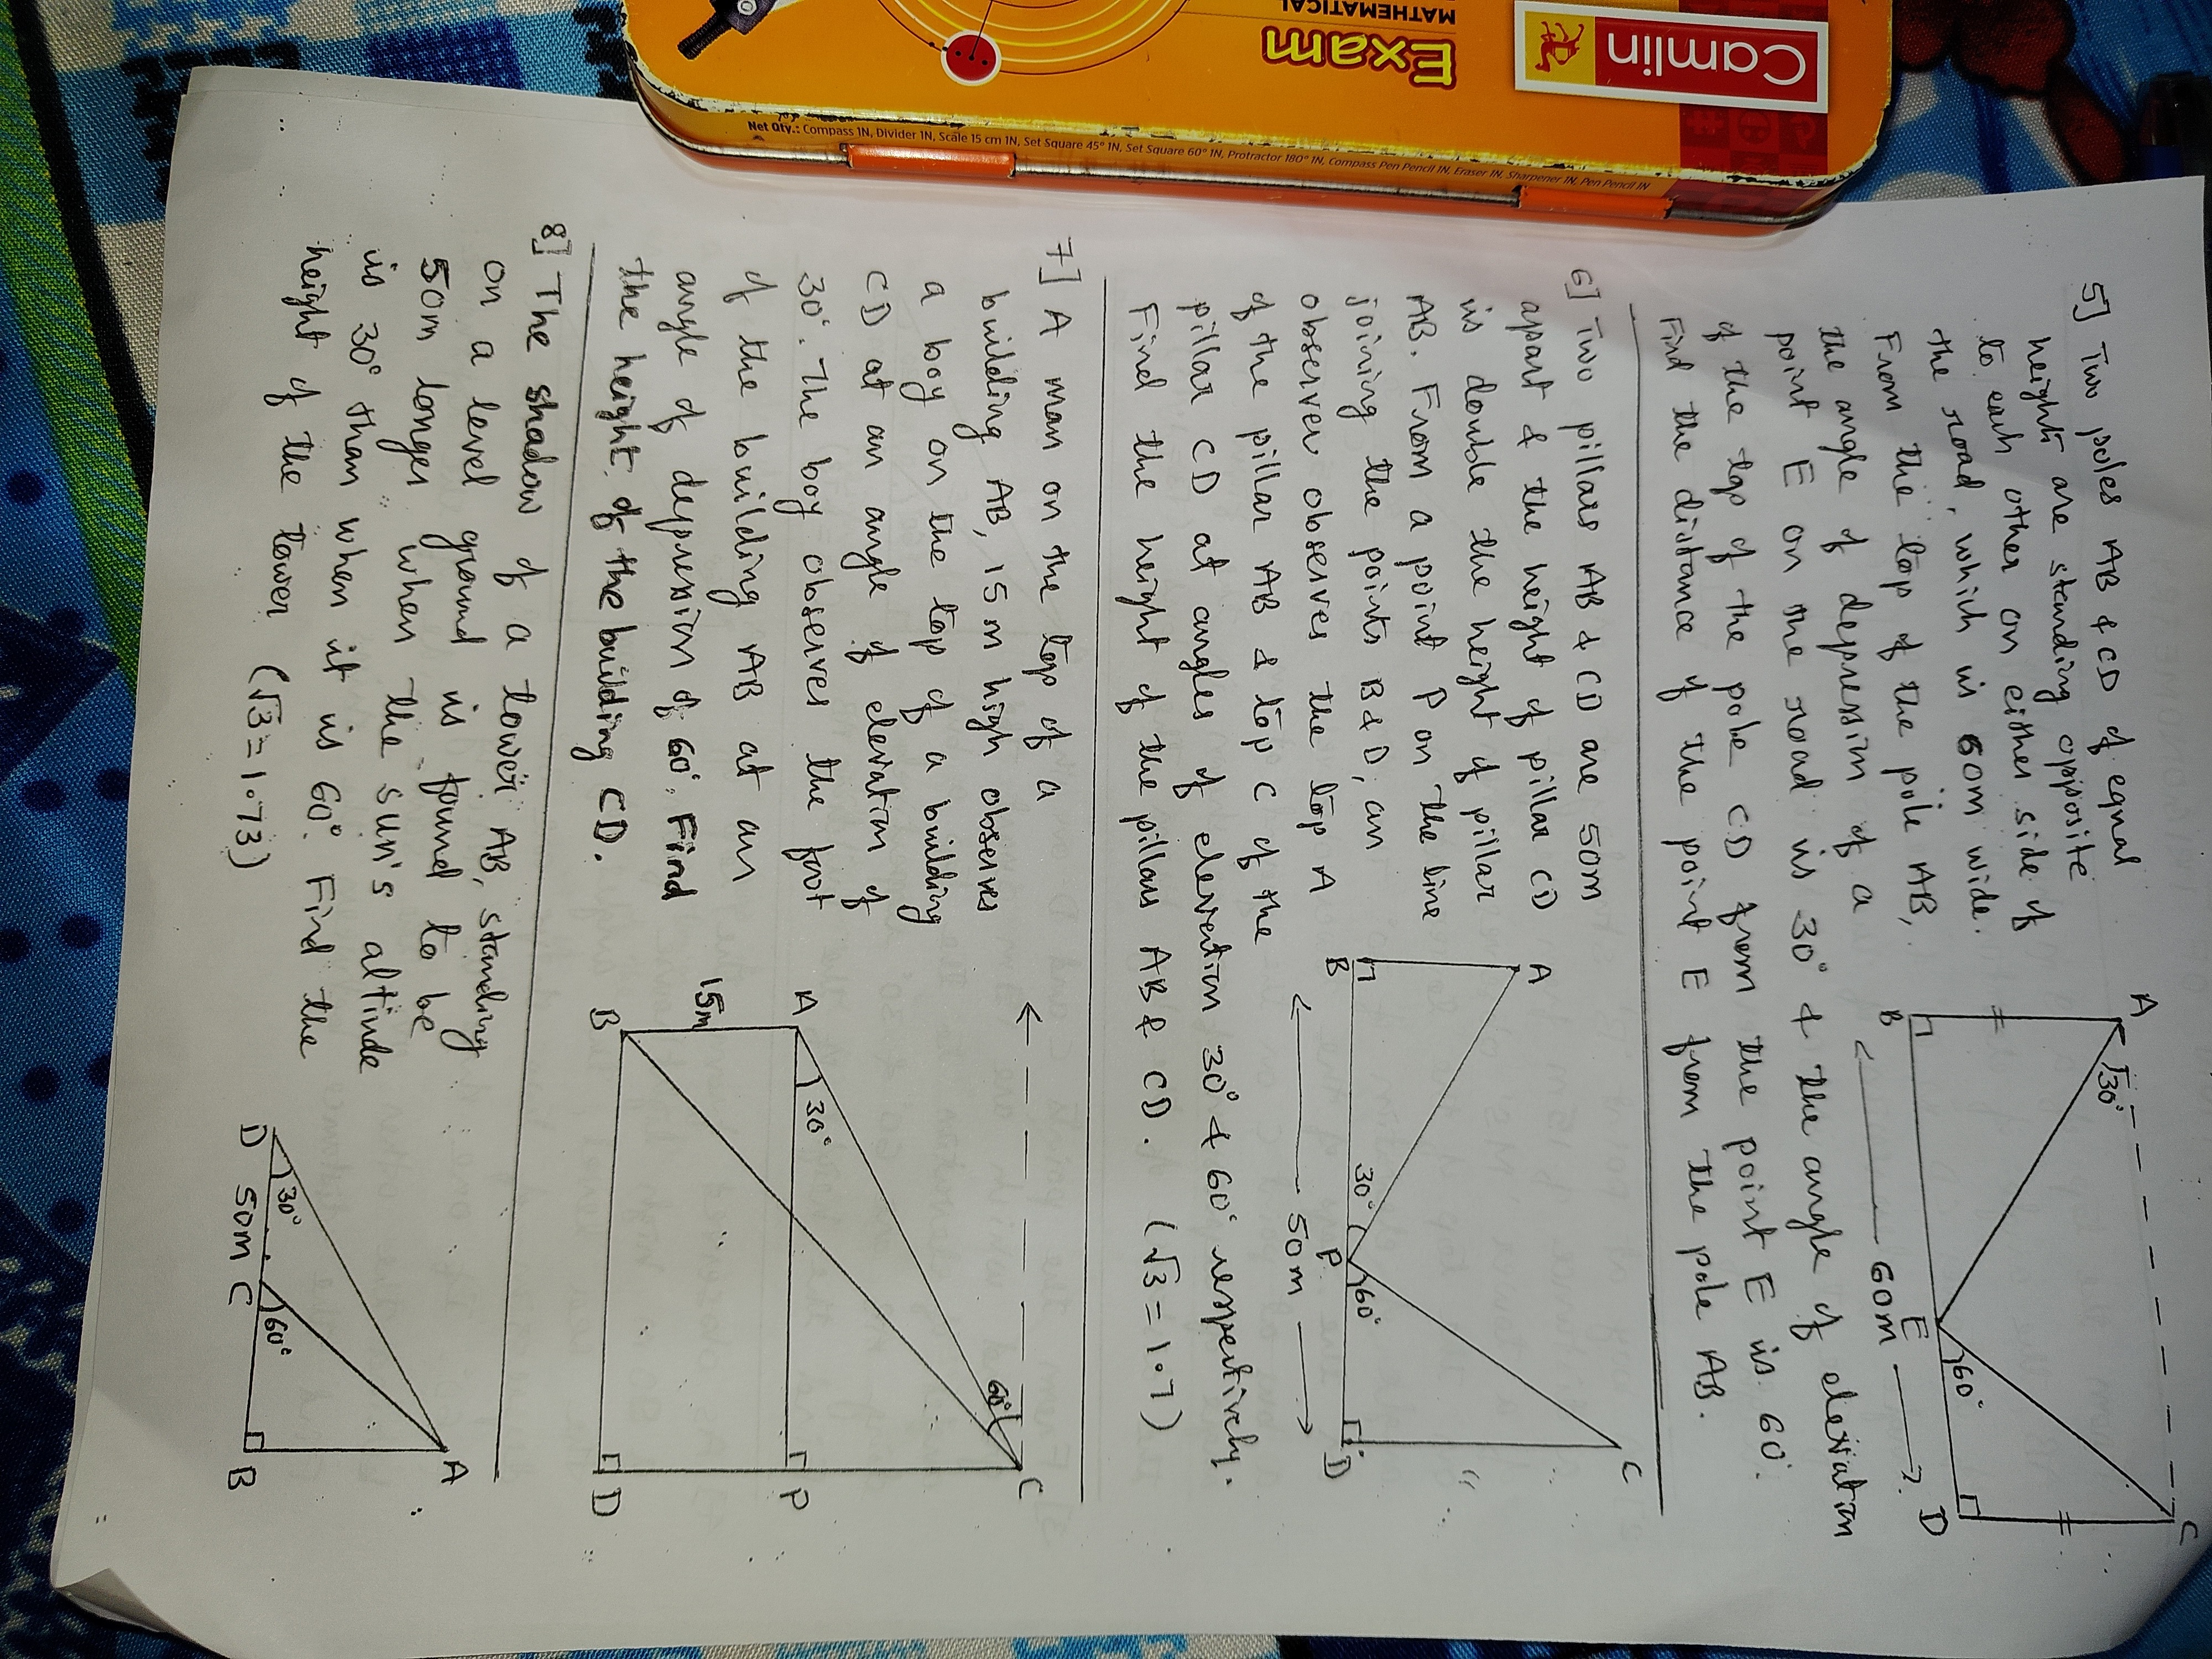 5] Two poles AB & CD of equal
height are standing opposite
to each other on either side of
the road, which is 60m wide.
From the top of the pole AB,
the angle of depression of a
point E on the road is 30° & the angle of elevation
of the top of the pole CD from the point E is 60°.
Find the distance of the point E from the pole AB.
A
30°
C
B
E
60°
D
60m
6] Two pillars AB & CD are 50m
apart & the height of pillar CD
is double the height of pillar
AB. From a point P on the line
joining the points B & D, an
observer observes the top A
of the pillar AB & top C of the
pillar CD at angles of elevation 30° & 60° respectively.
Find the height of the pillars AB & CD. (√3 = 1.7)
A
C
B
30°
P
60°
D
50m
7] A man on the top of a
building AB, 15m high observes
a boy on the top of a building
CD at an angle of elevation of
30°. The boy observes the foot
of the building AB at an
angle of depression of 60°. Find
the height of the building CD.
C
60°
A
30°
P
15m
B
D
8] The shadow of a tower AB, standing
on a level ground is found to be
50m longer when the sun's altitude
is 30° than when it is 60°. Find the
height of the tower (√3 = 1.73)
A
D
30°
C
60°
B
50m
Camlin
Exam
MATHEMATICAL
Net Qty.: Compass 1N, Divider 1N, Scale 15 cm 1N, Set Square 45° 1N, Set Square 60° 1N, Protractor 180° 1N, Compass Pen Pencil 1N, Eraser 1N, Sharpener 1N, Pen Pencil 1N